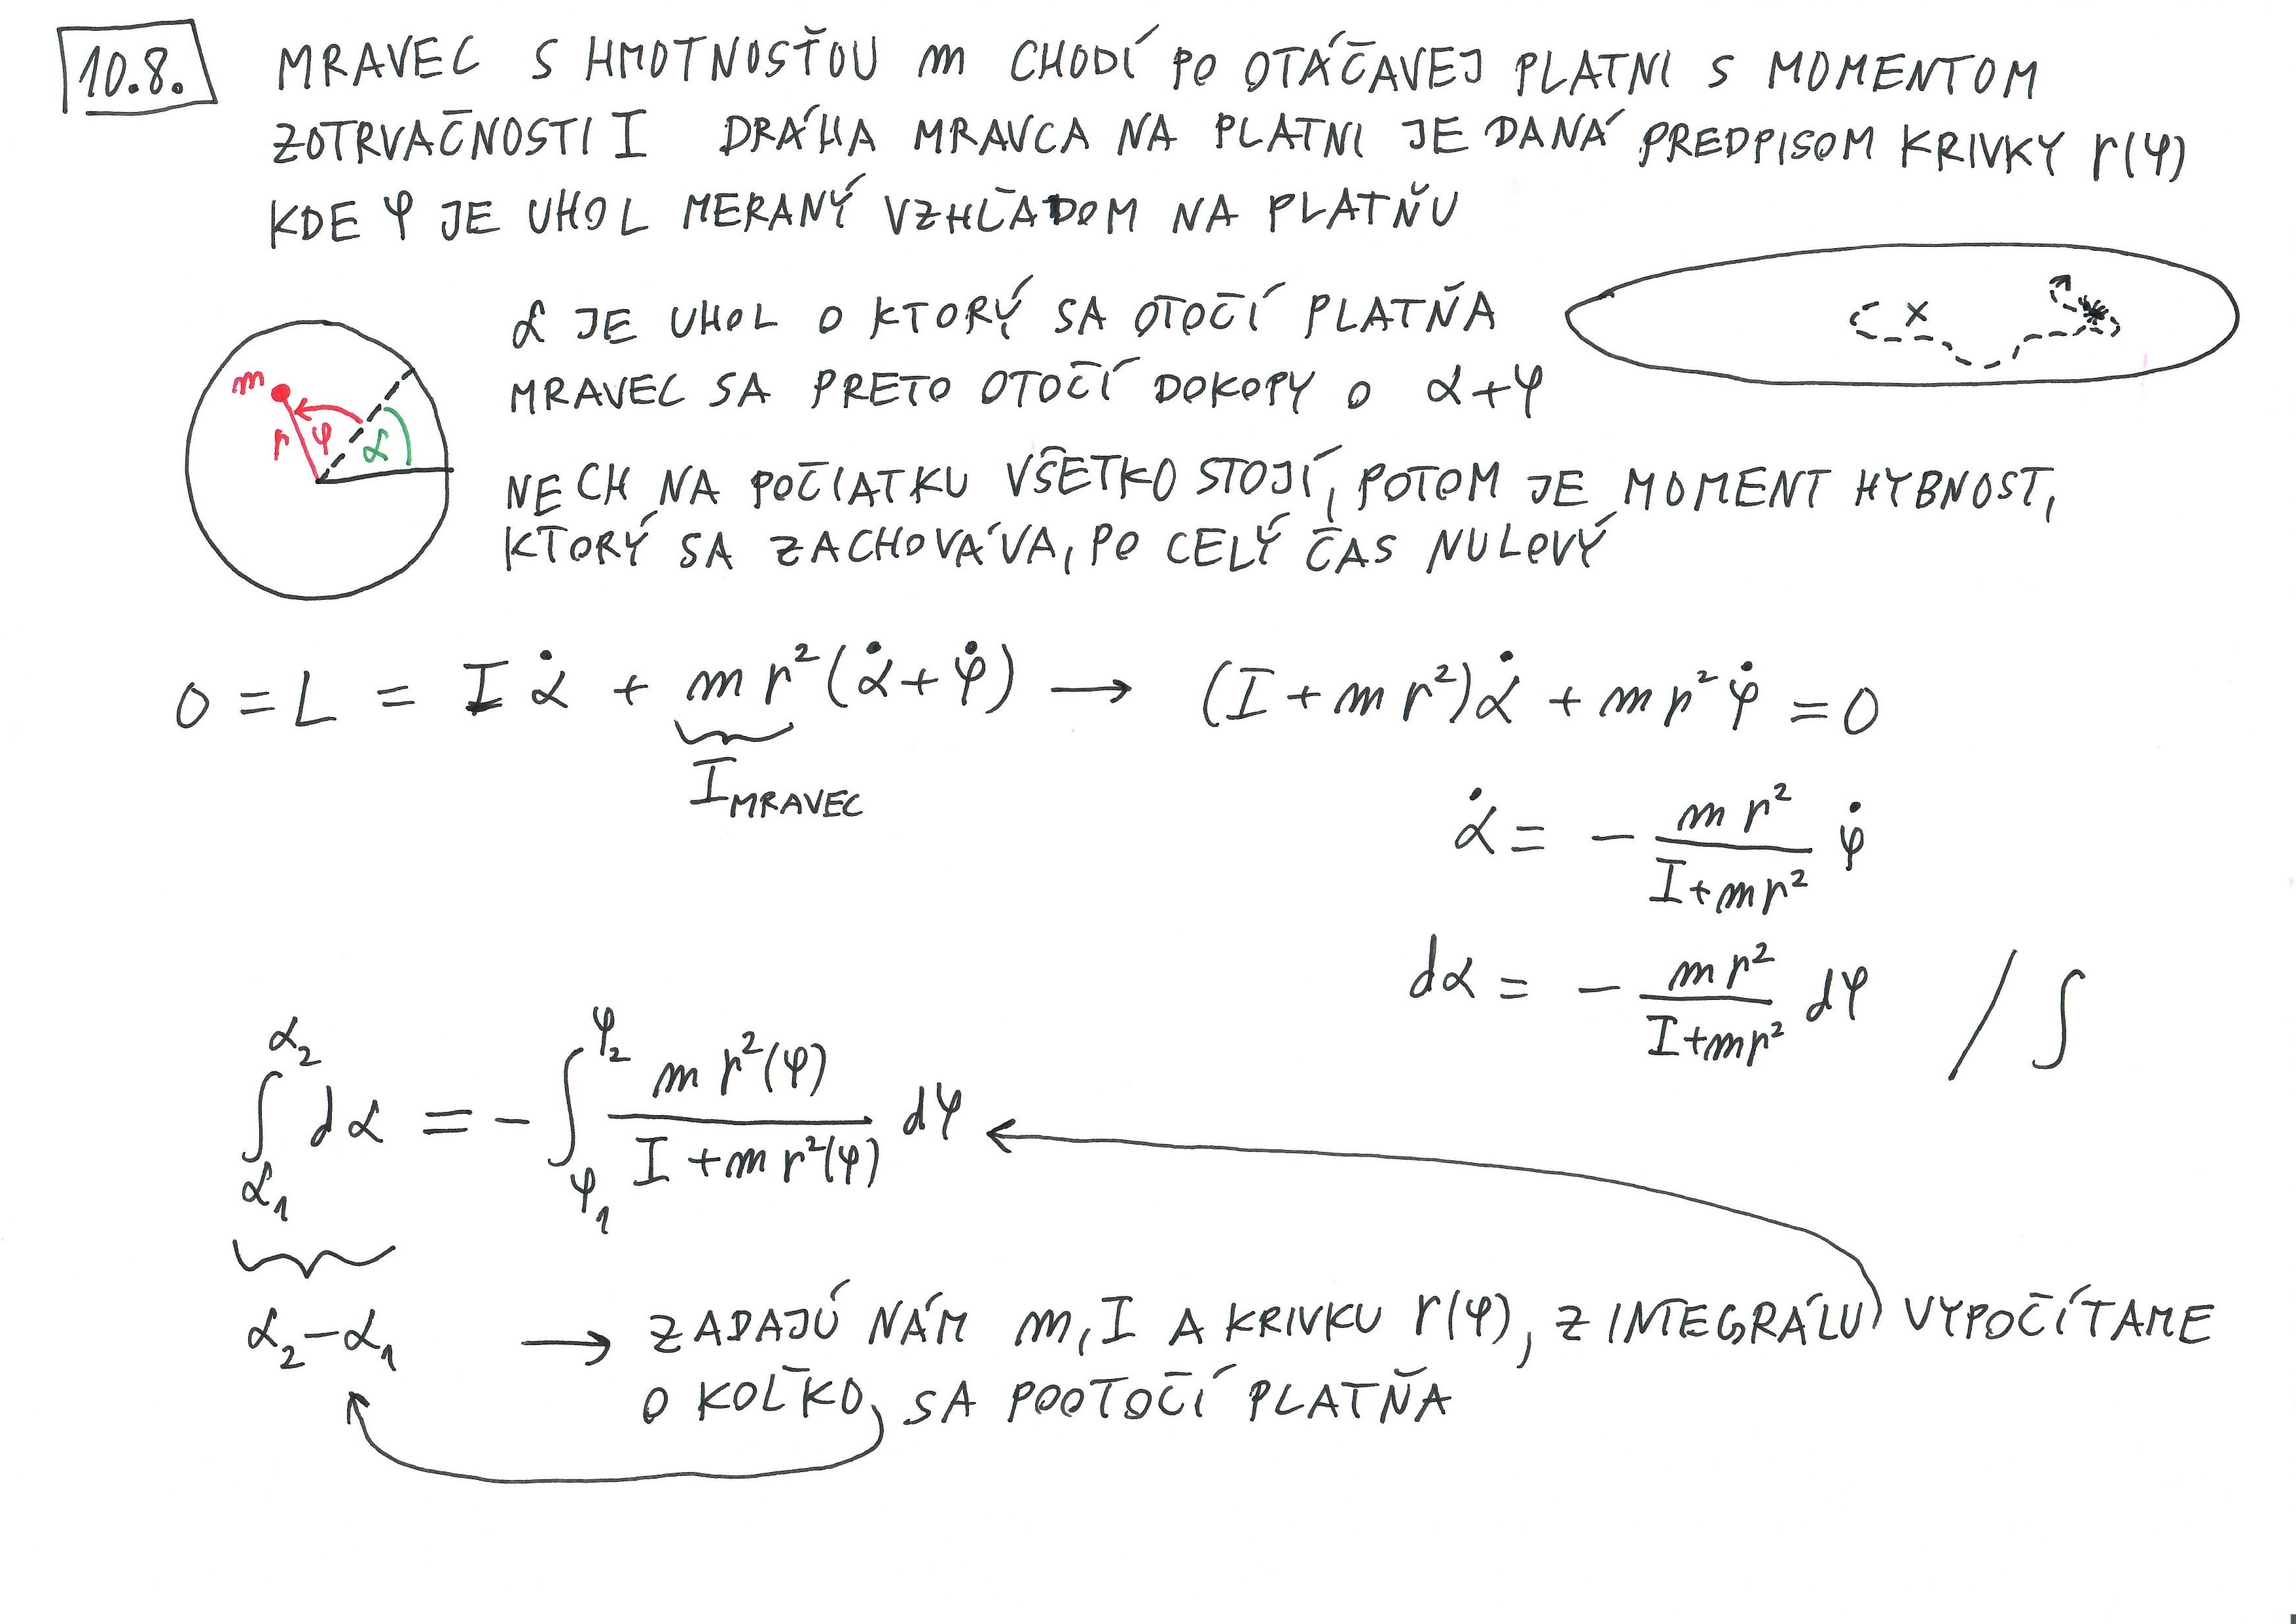 10.8. MRAVEC S HMOTNOSŤOU m CHODÍ PO OTÁČAVEJ PLATNI S MOMENTOM
ZOTRVAČNOSTI I DRÁHA MRAVCA NA PLATNI JE DANÁ PREDPISOM KRIVKY r(φ)
KDE φ JE UHOL MERANÝ VZHĽADOM NA PLATŇU
α JE UHOL O KTORÝ SA OTOČÍ PLATŇA
MRAVEC SA PRETO OTOČÍ DOKOPY O α+φ
x
m
r φ α
NECH NA POČIATKU VŠETKO STOJÍ, POTOM JE MOMENT HYBNOST,
KTORÝ SA ZACHOVÁVA, PO CELÝ ČAS NULOVÝ
0 = L = I α̇ + m r² (α̇ + φ̇) → (I + m r²) α̇ + m r² φ̇ = 0
I MRAVEC
α̇ = - m r² / (I + m r²) φ̇
dα = - m r² / (I + m r²) dφ / ∫
∫_{α₁}^{α₂} dα = - ∫_{φ₁}^{φ₂} m r²(φ) / (I + m r²(φ)) dφ
α₂ - α₁ → ZADAJÚ NÁM m, I A KRIVKU r(φ), Z INTEGRÁLU VYPOČÍTAME
O KOĽKO SA POOTOČÍ PLATŇA